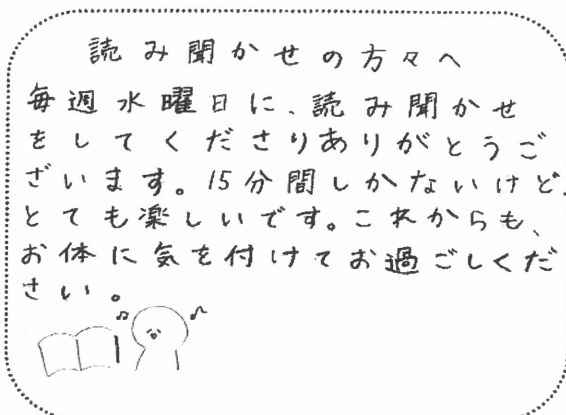 読み聞かせの方々へ
毎週水曜日に、読み聞かせ
をしてくださりありがとうご
ざいます。15分間しかないけど、
とても楽しいです。これからも、
お体に気を付けてお過ごしくだ
さい。